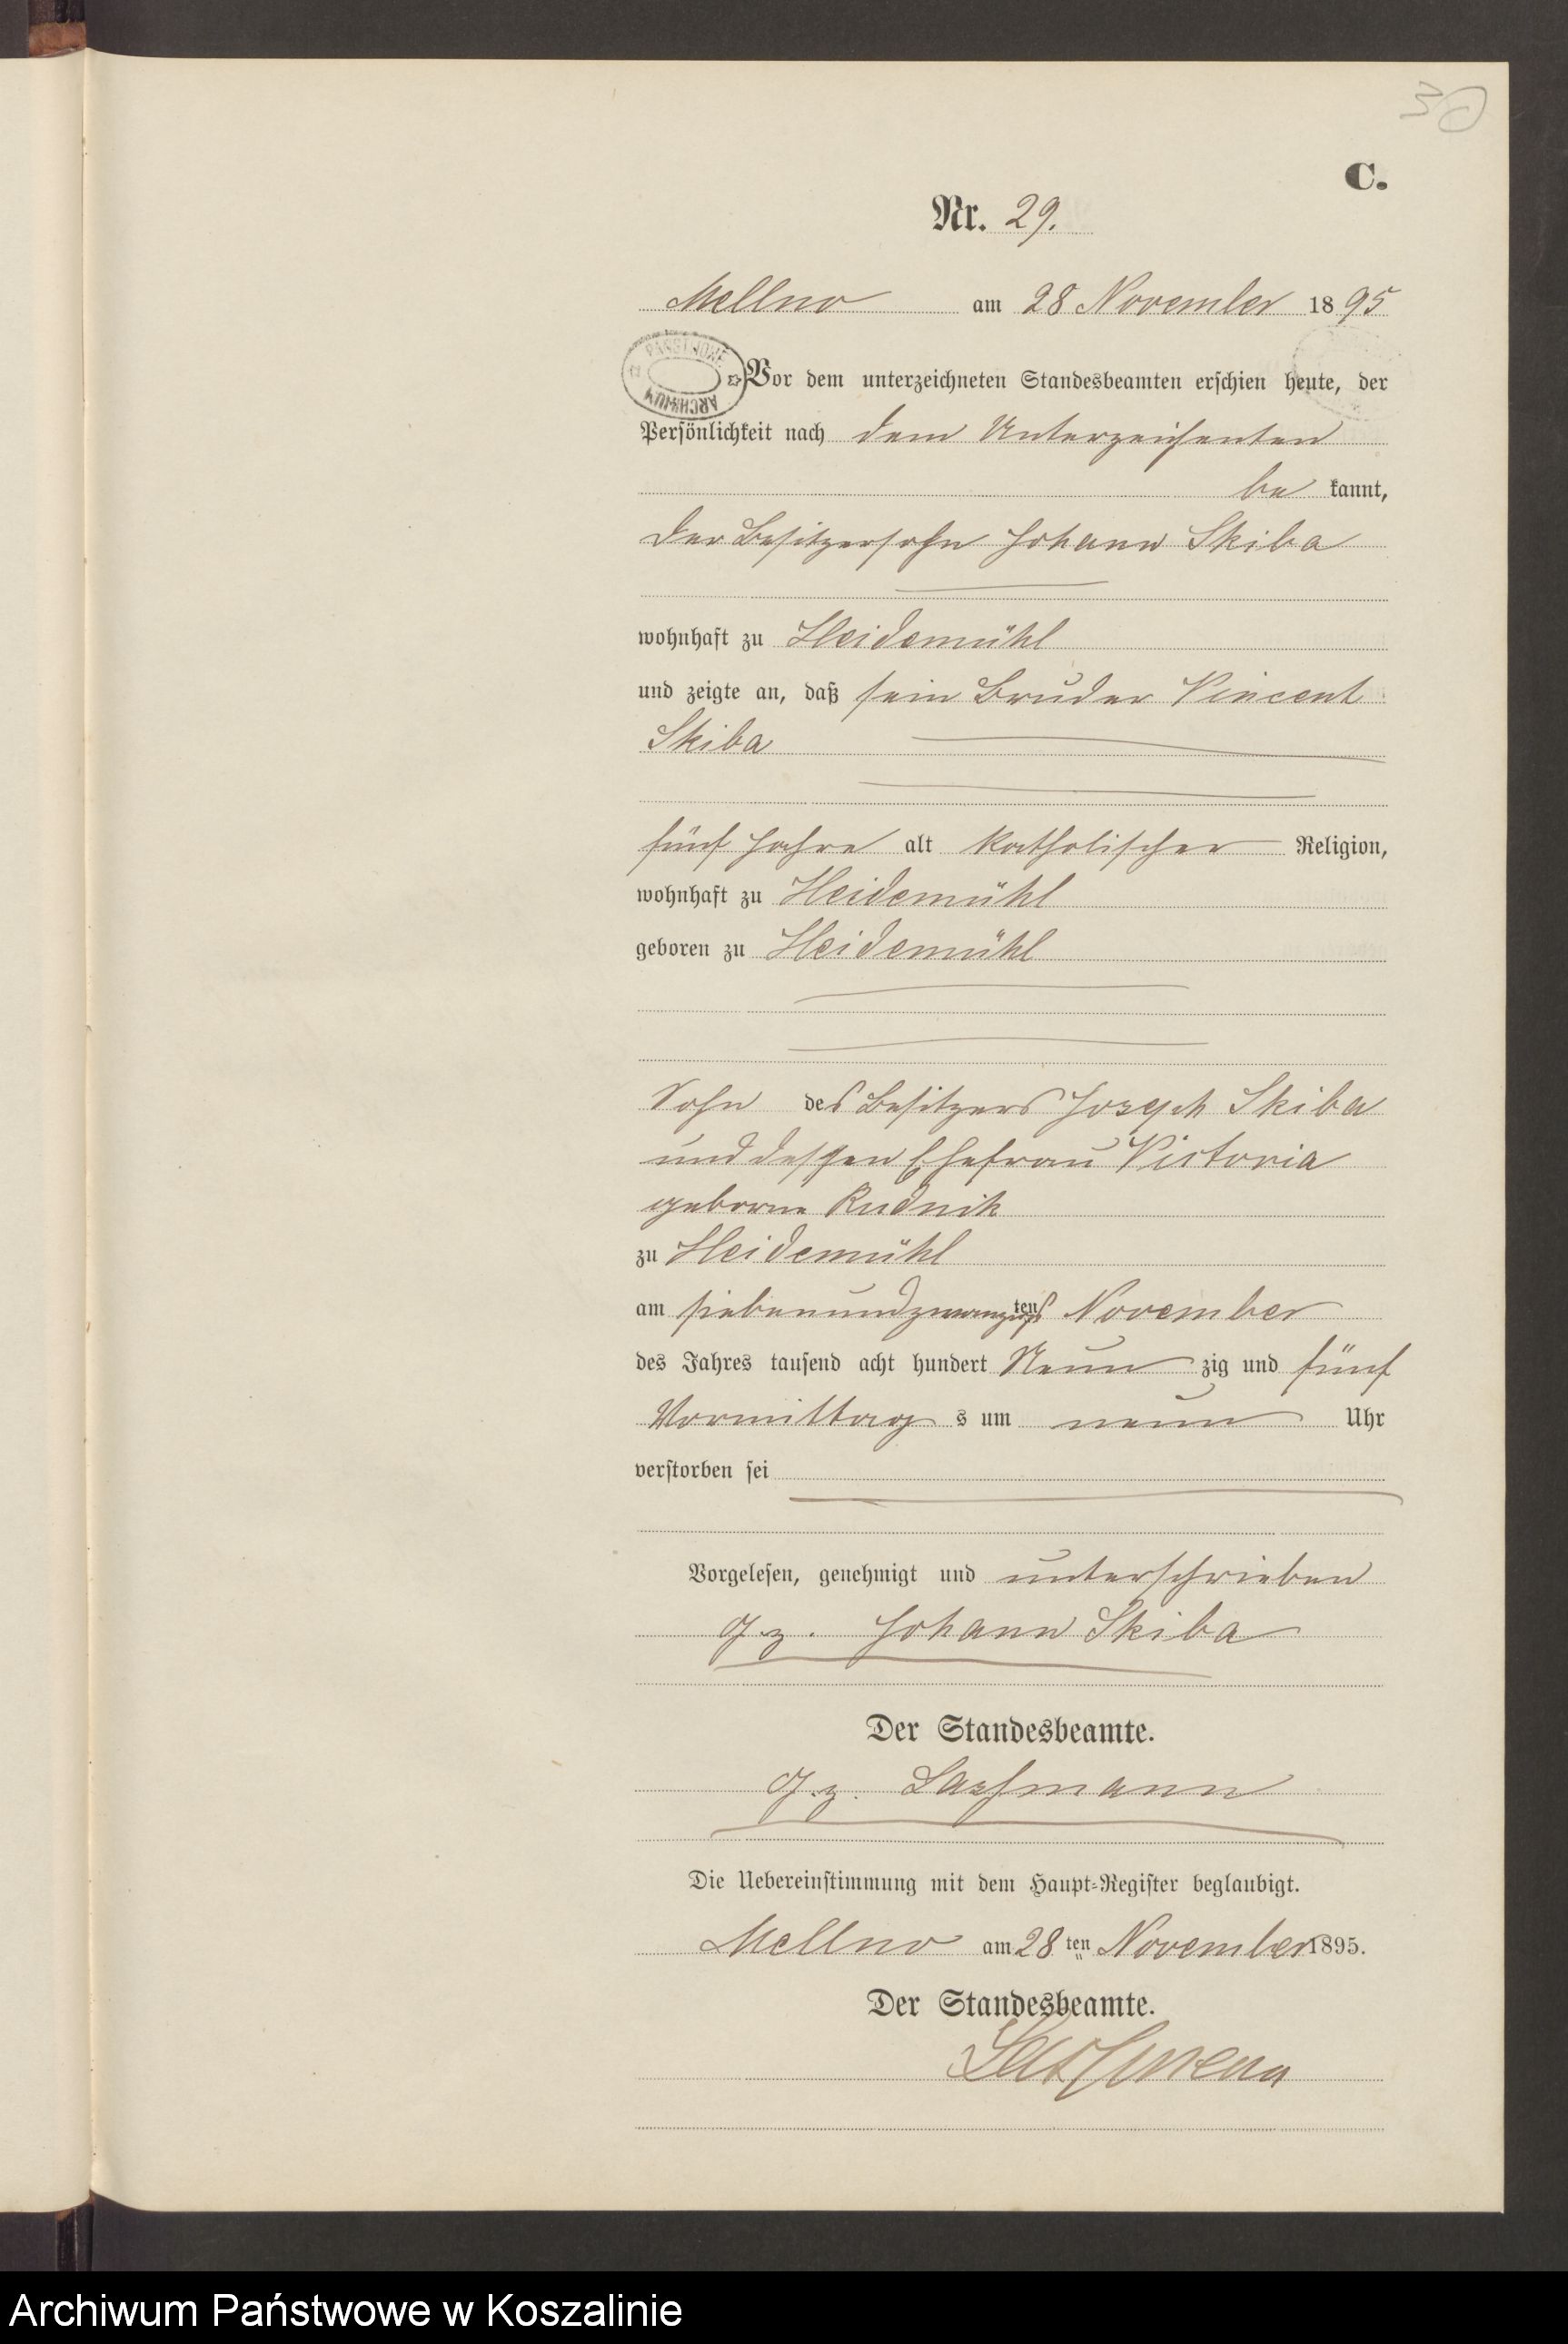 30
C.
Nr. 29.
Mellno am 28 November 1895
PAŃSTWOWE ARCHIWUM
Vor dem unterzeichneten Standesbeamten erschien heute, der
Persönlichkeit nach dem Unterzeichenten
be kannt,
der Besitzersohn Johann Skiba
wohnhaft zu Heidemühl
und zeigte an, daß sein Bruder Vincent
Skiba
fünf Jahre alt katholischer Religion,
wohnhaft zu Heidemühl
geboren zu Heidemühl
Sohn des Besitzers Joseph Skiba
und dessen Ehefrau Victoria
geborne Rudnik
zu Heidemühl
am siebenundzwanzigsten November
des Jahres tausend acht hundert Neun zig und fünf
Vormittag s um neun Uhr
verstorben sei
Vorgelesen, genehmigt und unterschrieben
gz. Johann Skiba
Der Standesbeamte.
gz.
Die Uebereinstimmung mit dem Haupt-Register beglaubigt.
Mellno am 28 ten November 1895.
Der Standesbeamte.
Archiwum Państwowe w Koszalinie